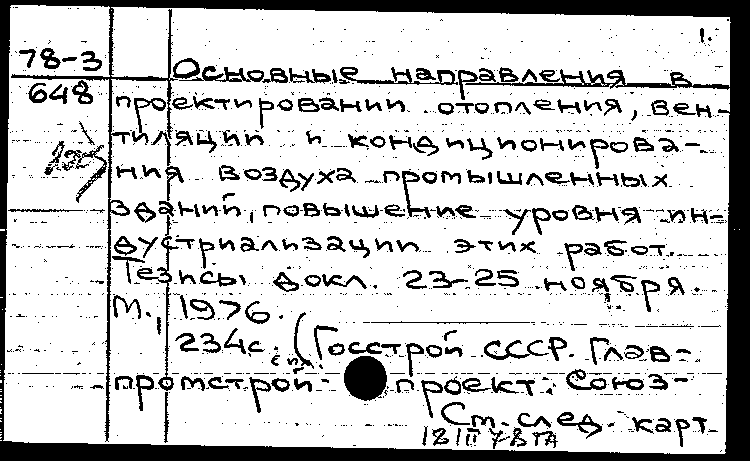 1.
78-3
648
Основные направления в
проектировании отопления, вен-
тиляции и кондиционирова-
ния воздуха промышленных
зданий, повышение уровня ин-
дустриализации этих работ.
Тезисы докл. 23-25 ноября.
М., 1976.
234с. (Госстрой СССР. Глав-
промстрой- проект. Союз-
См. след. карт.